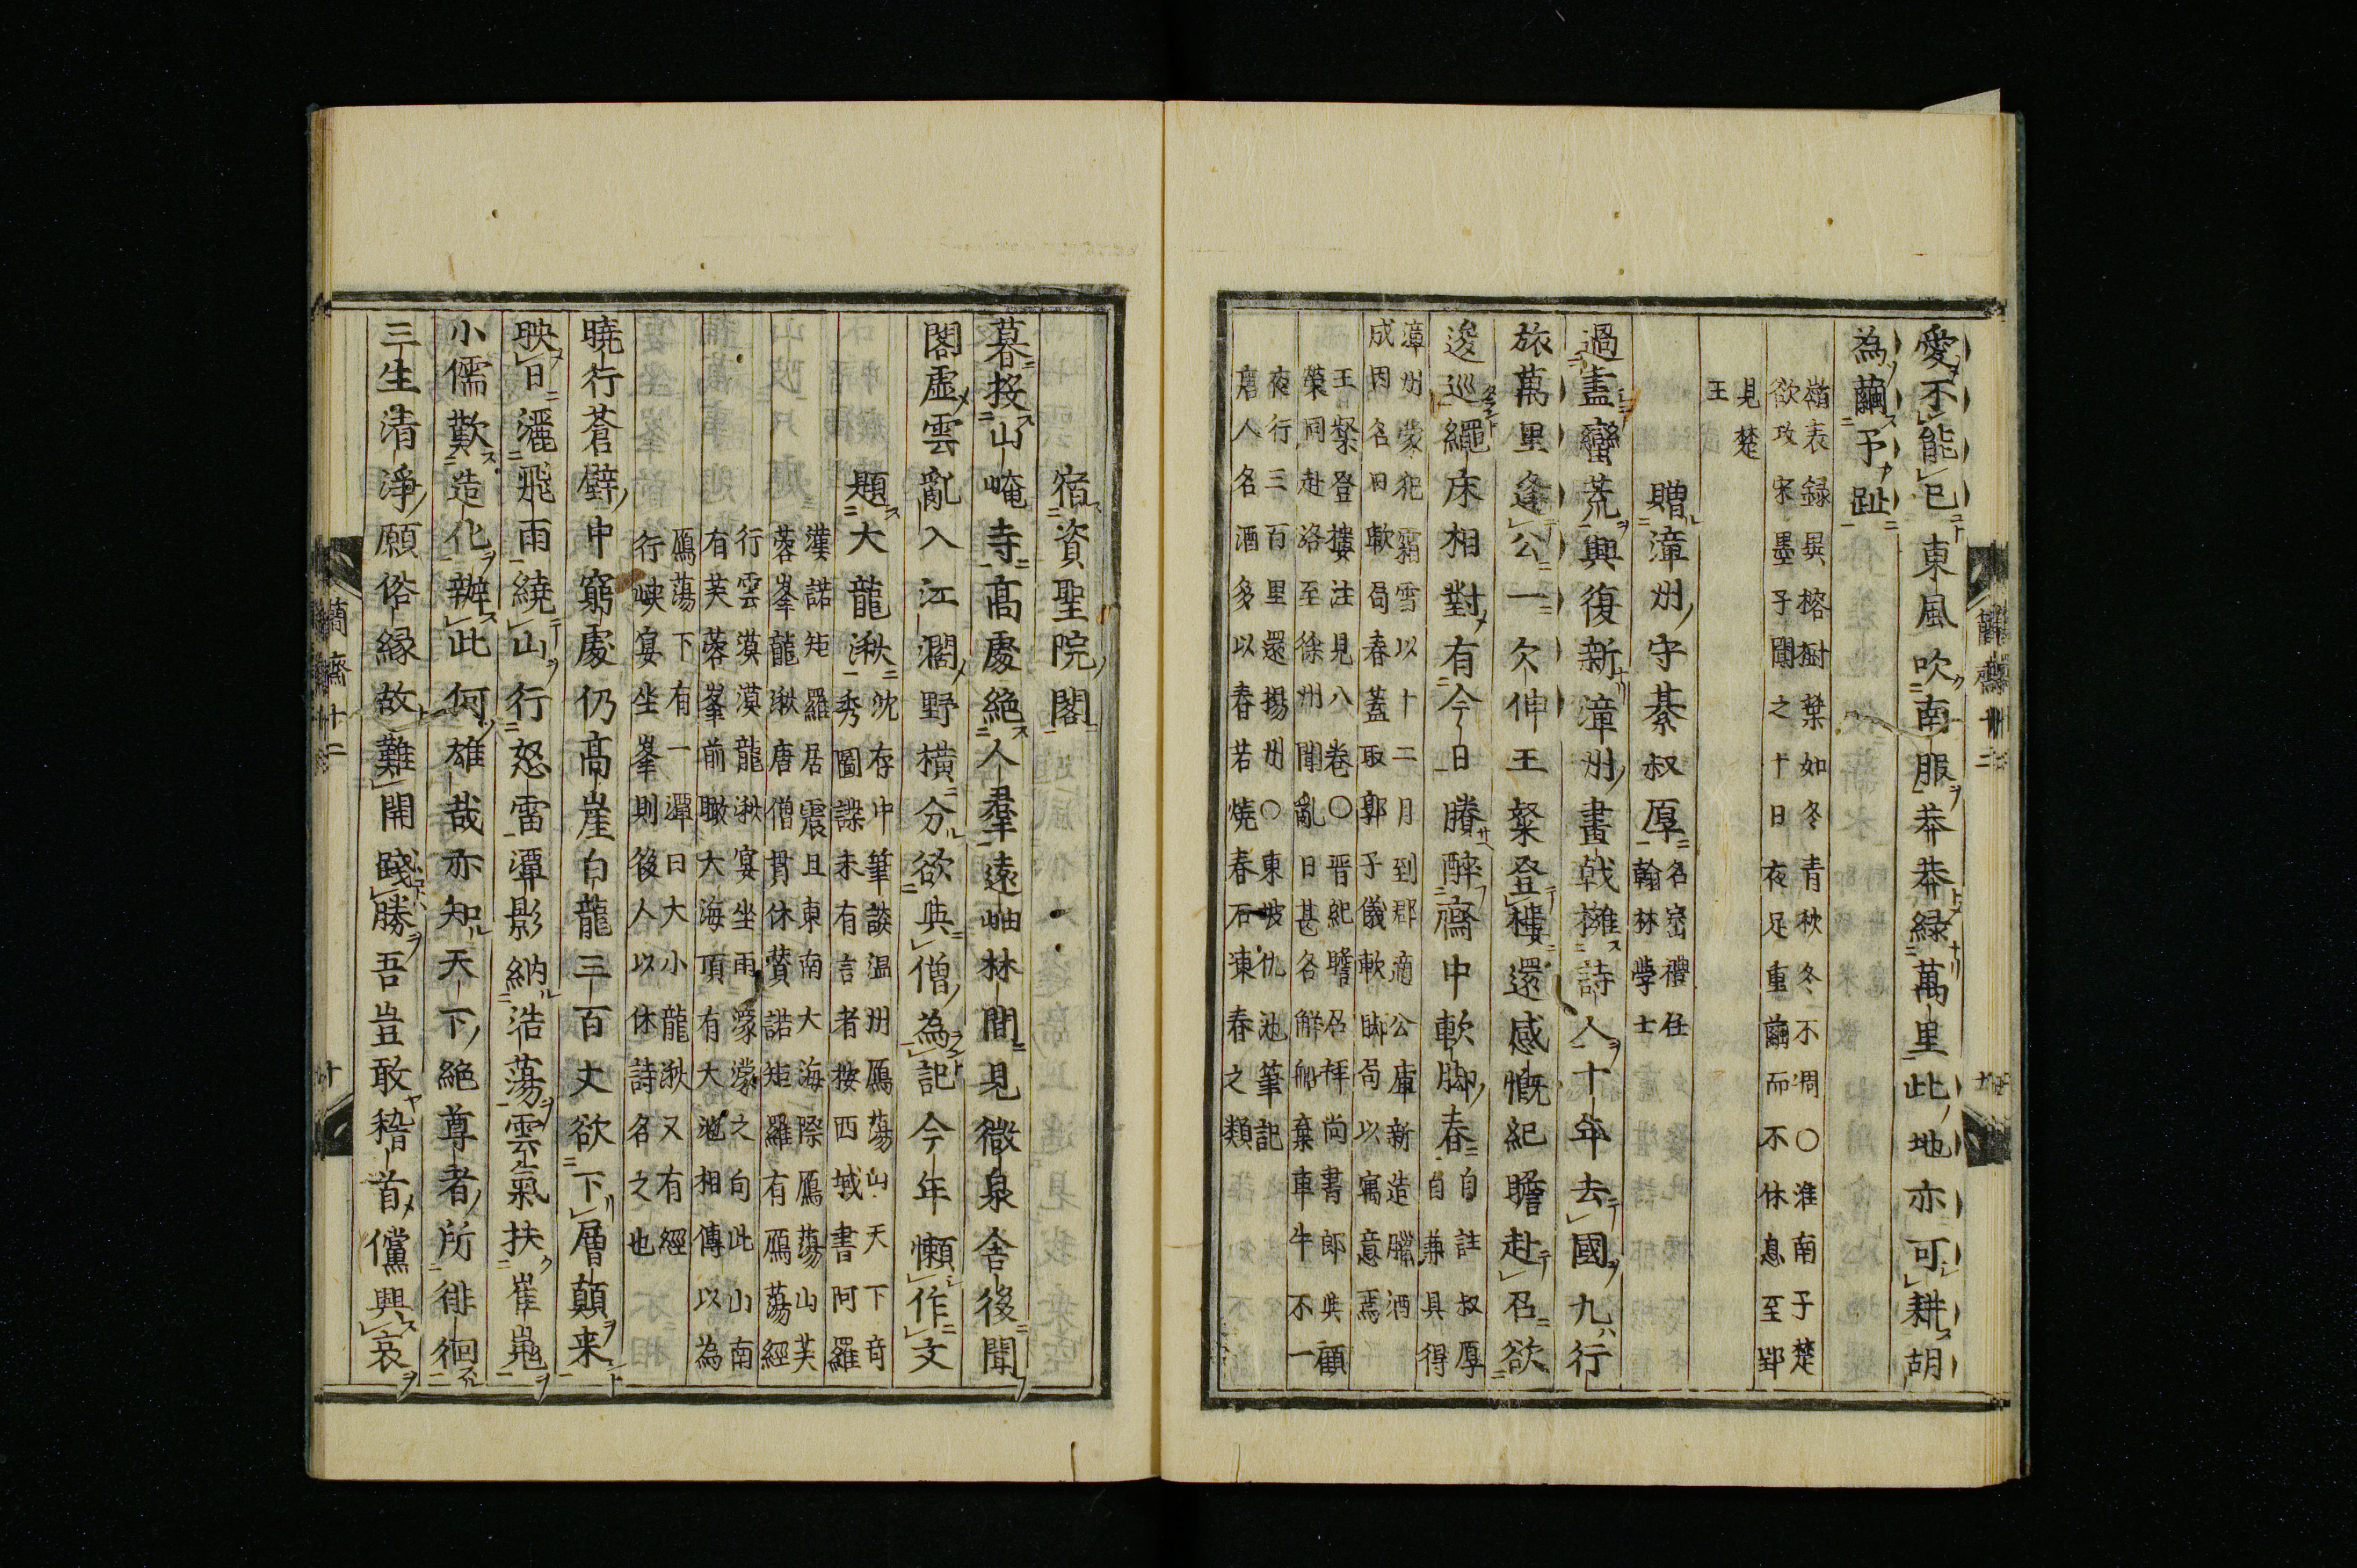 愛不能已東風吹南服莽莽緑萬里此地亦可耕胡
為繭予趾
嶺表録異榕樹葉如冬青秋冬不凋〇淮南子楚
欲攻宋墨子聞之十日夜足重繭而不休息至郢
見楚
王
贈漳州守綦叔厚
名崈禮任
翰林學士
過盡蠻荒興復新漳州畫戟擁詩人十年去國九行
旅萬里逢公一欠伸王粲登樓還感慨紀瞻赴召欲
逡巡繩床相對有今日賸醉齋中軟脚春
自註叔厚
自兼具得
漳州蒙犯霜雪以十二月到郡適公庫新造臘酒
成因名曰軟局春蓋取郭子儀軟脚局以寓意焉
王粲登樓注見八卷〇晋紀瞻召拜尚書郎與顧
榮同赴洛至徐州聞亂日甚各解船棄車牛不一
夜行三百里還揚州〇東坡仇池筆記
唐人名酒多以春若燒春石凍春之類
簡齋十二
宿資聖院閣
暮投山崦寺高處絶人羣遠岫林間見微泉舎後聞
閣虚雲亂入江濶野横分欲與僧為記今年懶作文
題大龍湫
沈存中筆談温州鴈蕩山天下竒
秀圖諜未有言者按西域書阿羅
漢諾矩羅居震旦東南大海際鴈蕩山芙
蓉峯龍湫唐僧貫休賛諾矩羅有鴈蕩經
行雲漠漠龍湫宴坐雨濛濛之句此山南
有芙蓉峯前瞰大海頂有大池相傳以為
鴈蕩下有一潭曰大小龍湫又有經
行峽宴坐峯則後人以休詩名之也
曉行蒼壁中窮處仍高崖白龍三百丈欲下層顛来
映日灑飛雨繞山行怒雷潭影納浩蕩雲氣扶崔嵬
小儒歎造化辦此何雄哉亦知天下絶尊者所徘徊
三生清淨願俗縁故難開踐勝吾豈敢稽首儻興哀
簡齋十二
十